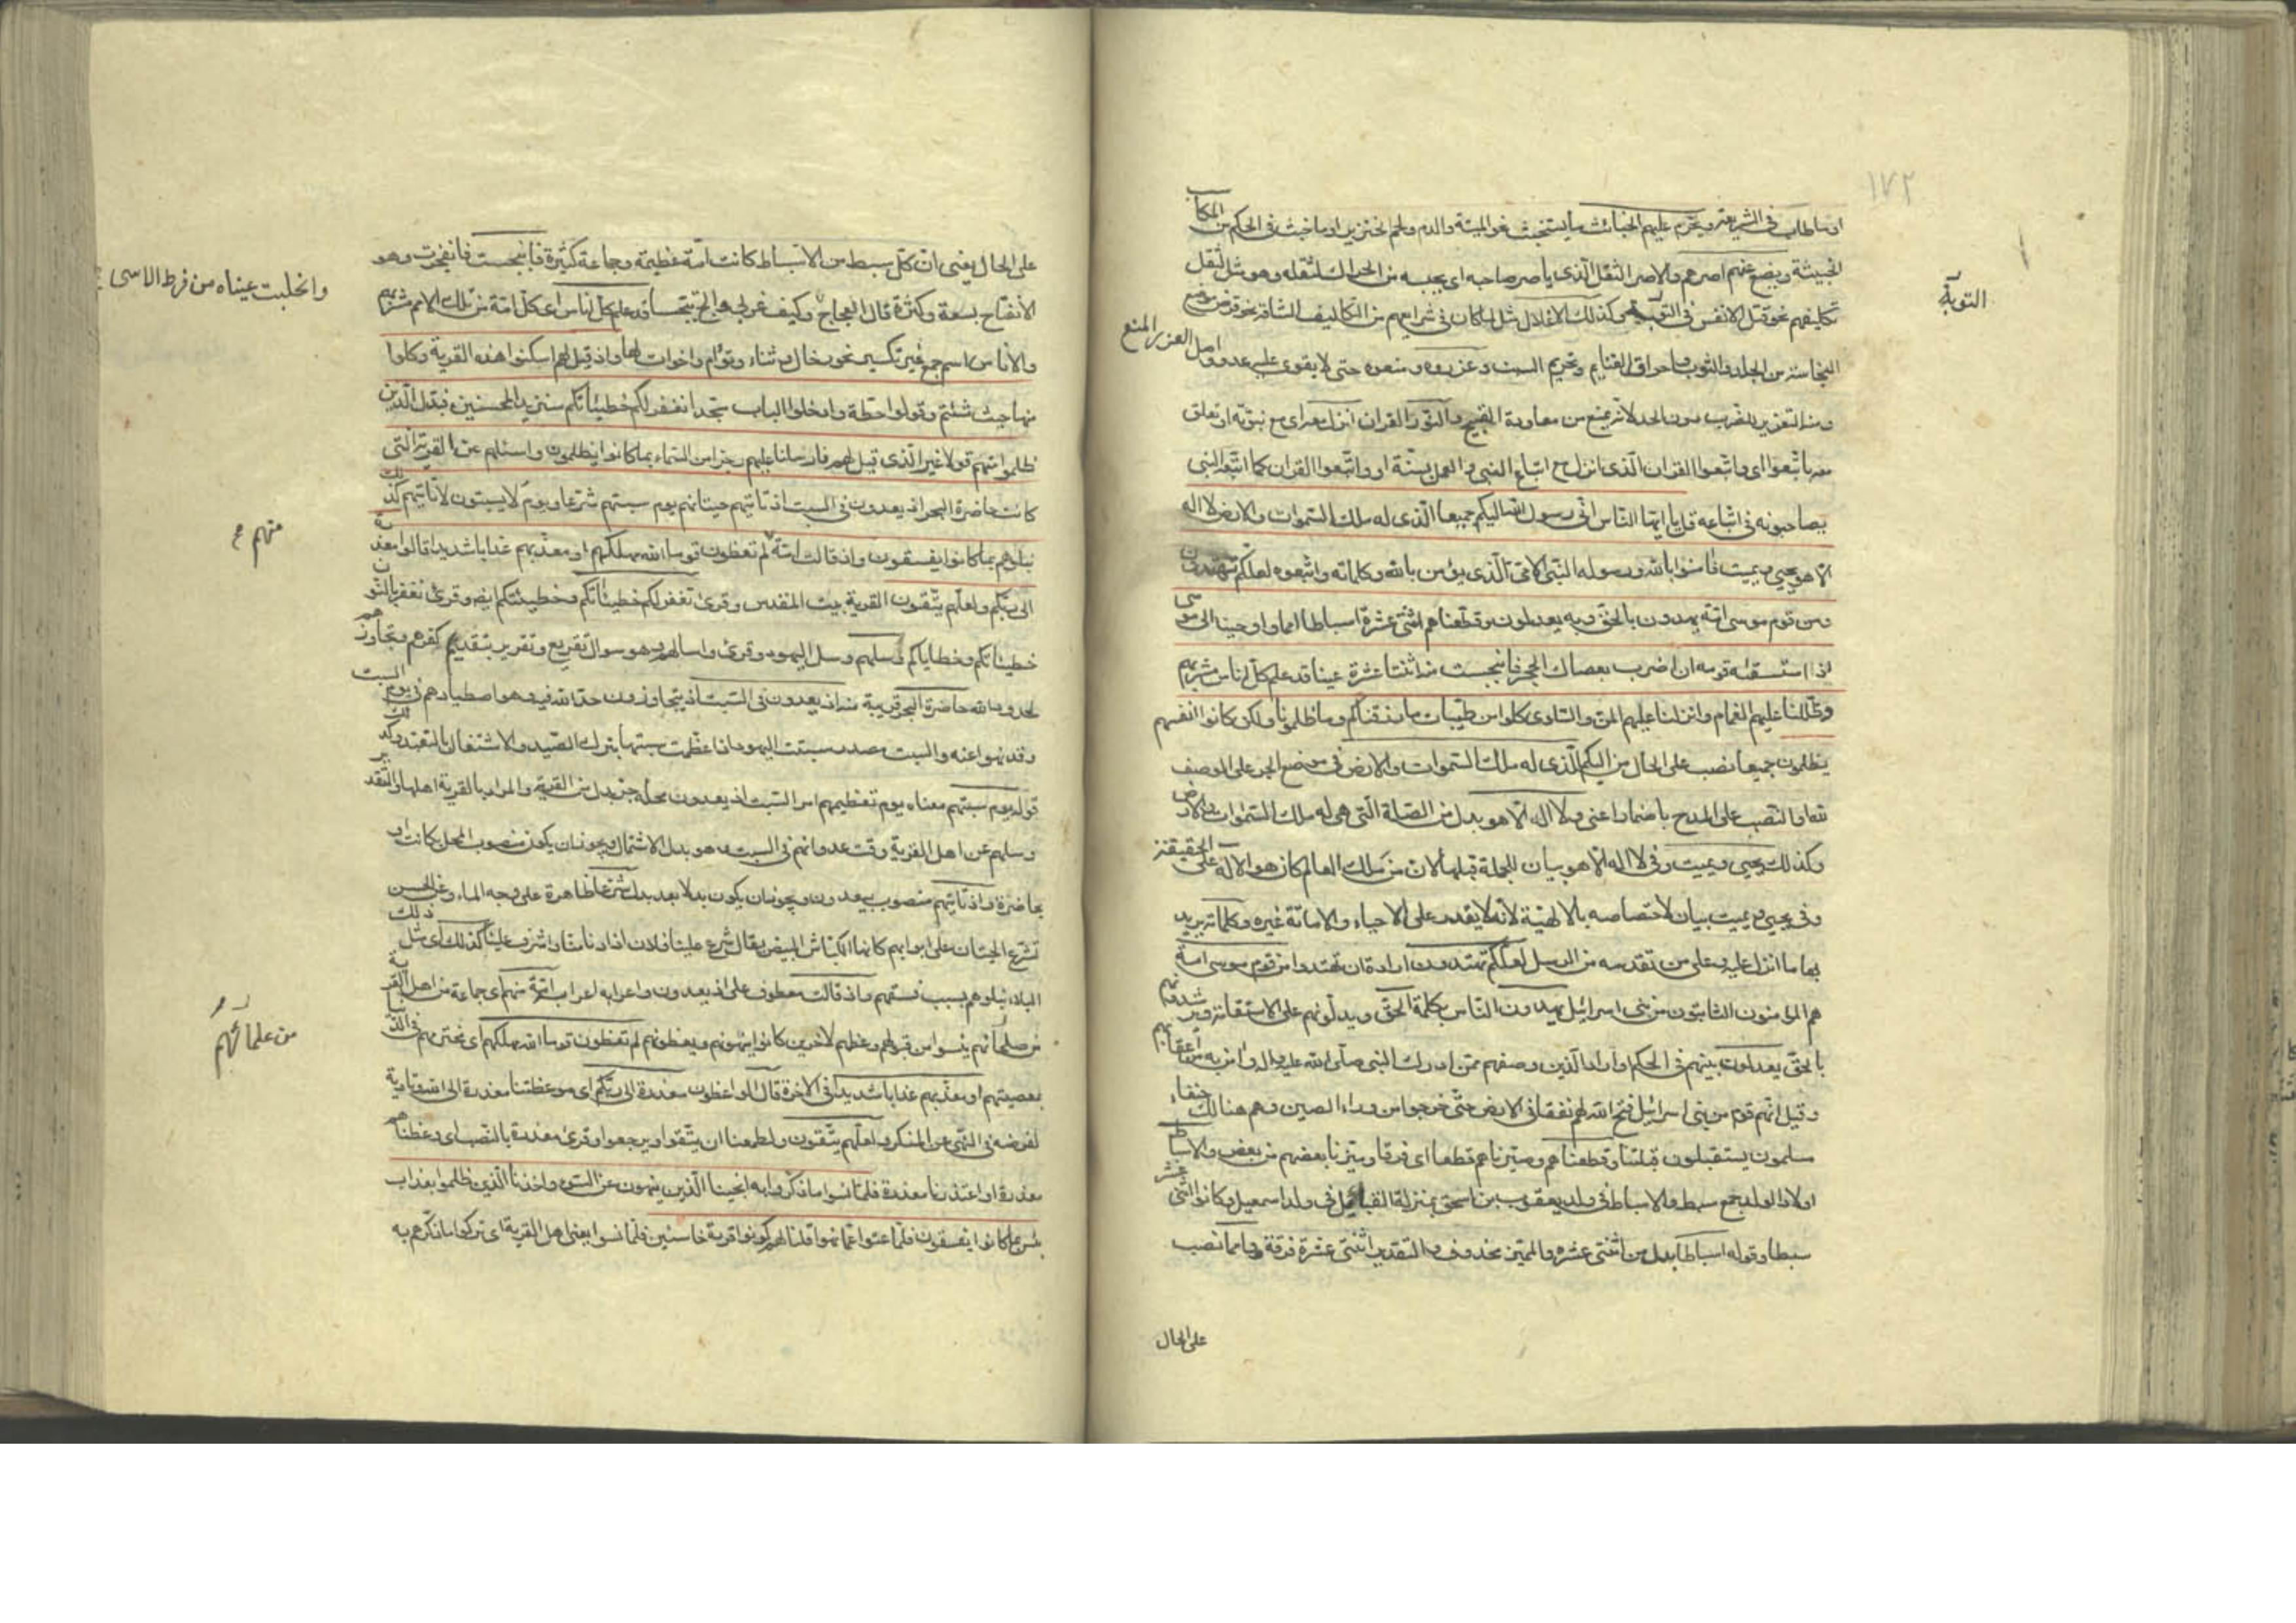 ١٧٢
او ما طاب في الشريعة ويحرم عليهم الخبائث ما يستخبث نحو الميتة والدم ولحم الخنزير او ما خبث في الحكم من المكاسب
الخبيثة ويضع عنهم اصرهم والاصر الثقل الذى ياصر صاحبه اى يحبسه من الحراك لثقله وهو مثل لثقل
تكاليفهم نحو قتل الانفس في التوبة وكذلك الاغلال مثل لما كان في شرايعهم من التكاليف الشاقة نحو قرض موضع
التوبة
النجاسة من الجلد والثوب واحراق الغنايم وتحريم السبت وعزروه ومنعوه حتى لا يقوى عليه عدو واصل العزر المنع
ومنه التعزير للضرب دون الحد لانه يمنع من معاودة القبيح والنور القران انزل معه اى مع نبوته او تعلق
معه باتبعوا اى واتبعوا القران الذى انزل مع اتباع النبي والعمل بسنته او واتبعوا القران كما اتبعه النبي
يصاحبونه في اتباعه قل يا ايها الناس انى رسول الله اليكم جميعا الذى له ملك السموات والارض لا اله
الا هو يحيى ويميت فامنوا بالله ورسوله النبى الامى الذى يؤمن بالله وكلماته واتبعوه لعلكم تهتدون
ومن قوم موسى امة يهدون بالحق وبه يعدلون وقطعناهم اثنتى عشرة اسباطا امما واوحينا الى موسى
اذ استسقيه قومه ان اضرب بعصاك الحجر فانبجست منه اثنتا عشرة عينا قد علم كل اناس مشربهم
وظللنا عليهم الغمام وانزلنا عليهم المن والسلوى كلوا من طيبات ما رزقناكم وما ظلمونا ولكن كانوا انفسهم
يظلمون جميعا نصب على الحال من اليكم الذى له ملك السموات والارض في موضع الجر على الوصف
لله او النصب على المدح باضمار اعنى ولا اله الا هو بدل من الصلة التى هى له ملك السموات والارض
وكذلك يحيى ويميت وفى لا اله الا هو بيان للجملة قبلها لان من ملك العالم كان هو الاله على الحقيقة
وفى يحيى ويميت بيان لاختصاصه بالالهية لانه لا يقدر على الاحياء والاماتة غيره وكلماته يريد
بها ما انزل عليه وعلى من تقدمه من الرسل لعلكم تهتدون ارادة ان تهتدوا من قوم موسى امة
هم المؤمنون الثابتون من بنى اسرائيل يهدون الناس بكلمة الحق ويدلونهم على الاستقامة ويرشدونهم
بالحق يعدلون بينهم في الحكم او اراد الذين وصفهم ممن ادرك النبى صلى الله عليه واله وامن به من اعقابهم
وقيل انهم قوم من بنى اسرائيل فتح الله لهم نفقا في الارض حتى خرجوا من وراء الصين وهم هنالك حنفاء
مسلمون يستقبلون قبلتنا وقطعناهم وصيرناهم قطعا اى فرقا وميزنا بعضهم من بعض والاسباط
اولاد الولد جمع سبط والاسباط في ولد يعقوب بن اسحق بمنزلة القبائل في ولد اسمعيل وكانوا اثنى عشر
سبطا وقوله اسباطا بدل من اثنتى عشرة والمميز محذوف والتقدير اثنتى عشرة فرقة وامما نصب
على الحال
على الحال يعنى ان كل سبط من الاسباط كانت امة عظيمة وجماعة كثيرة فانبجست فانفجرت وهو
الانفتاح بسعة وكثرة قال العجاج وكيف غربى دالج تبجسا قد علم كل اناس اى كل امة من تلك الامم مشربهم
وانحلبت عيناه من فرط الاسى
والاناس اسم جمع غير تكسير نحو رخال وثناء وتؤام واخوات لها واذ قيل لهم اسكنوا هذه القرية وكلوا
منها حيث شئتم وقولوا حطة وادخلوا الباب سجدا نغفر لكم خطيئاتكم سنزيد المحسنين فبدل الذين
ظلموا منهم قولا غير الذى قيل لهم فارسلنا عليهم رجزا من السماء بما كانوا يظلمون واسئلهم عن القرية التى
كانت حاضرة البحر اذ يعدون في السبت اذ تاتيهم حيتانهم يوم سبتهم شرعا ويوم لا يسبتون لا تاتيهم كذلك
نبلوهم بما كانوا يفسقون واذ قالت امة لم تعظون قوما الله مهلكهم او معذبهم عذابا شديدا قالوا معذرة
منهم
الى ربكم ولعلهم يتقون القرية بيت المقدس وقرئ تغفر لكم خطيئاتكم وخطيئتكم ايضا وقرئ نغفر بالنون
خطيئاتكم وخطاياكم وسلهم وسل اليهود وقرئ واسالهم وهو سوال تقريع وتقرير بتقديم كفرهم وتجاوزهم
لحدود الله حاضرة البحر قريبة منه اذ يعدون في السبت اذ يتجاوزون حد الله فيه وهو اصطيادهم في يوم السبت
وقد نهوا عنه والسبت مصدر سبتت اليهود اذا عظمت سبتها بترك الصيد والاشتغال بالتعبد وكذلك
قوله يوم سبتهم معناه يوم تعظيمهم امر السبت اذ يعدون محله جر بدل من القرية والمراد بالقرية اهلها والتقدير
وسلهم عن اهل القرية وقت عدوانهم في السبت وهو بدل الاشتمال ويجوز ان يكون منصوب المحل بكانت او
بحاضرة واذ تاتيهم منصوب بيعدون ويجوز ان يكون بدلا بعد بدل شرعا ظاهرة على وجه الماء وعن الحسن
تشرع الحيتان على ابوابهم كانها الكباش البيض يقال شرع علينا فلان اذا دنا منا واشرف علينا كذلك اى مثل ذلك
البلاء نبلوهم بسبب فسقهم واذ قالت معطوف على اذ يعدون واعرابه اعرابه امة منهم اى جماعة من اهل القرية
من صلحائهم يئسوا من قبولهم وعظهم لاخرين كانوا ينهونهم ويعظونهم لم تعظون قوما الله مهلكهم اى مخترمهم في الدنيا
من علمائهم
بمعصيتهم او معذبهم عذابا شديدا في الاخرة قال الواعظون معذرة الى ربكم اى موعظتنا معذرة الى الله وتادية
لفرضه في النهى عن المنكر ولعلهم يتقون ولطمعنا ان يتقوا ويرجعوا وقرئ معذرة بالنصب اى وعظناهم
معذرة او اعتذرنا معذرة فلما نسوا ما ذكروا به انجينا الذين ينهون عن السوء واخذنا الذين ظلموا بعذاب
بئس بما كانوا يفسقون فلما عتوا عما نهوا قلنا لهم كونوا قردة خاسئين فلما نسوا يعنى اهل القرية اى تركوا ما ذكرهم به